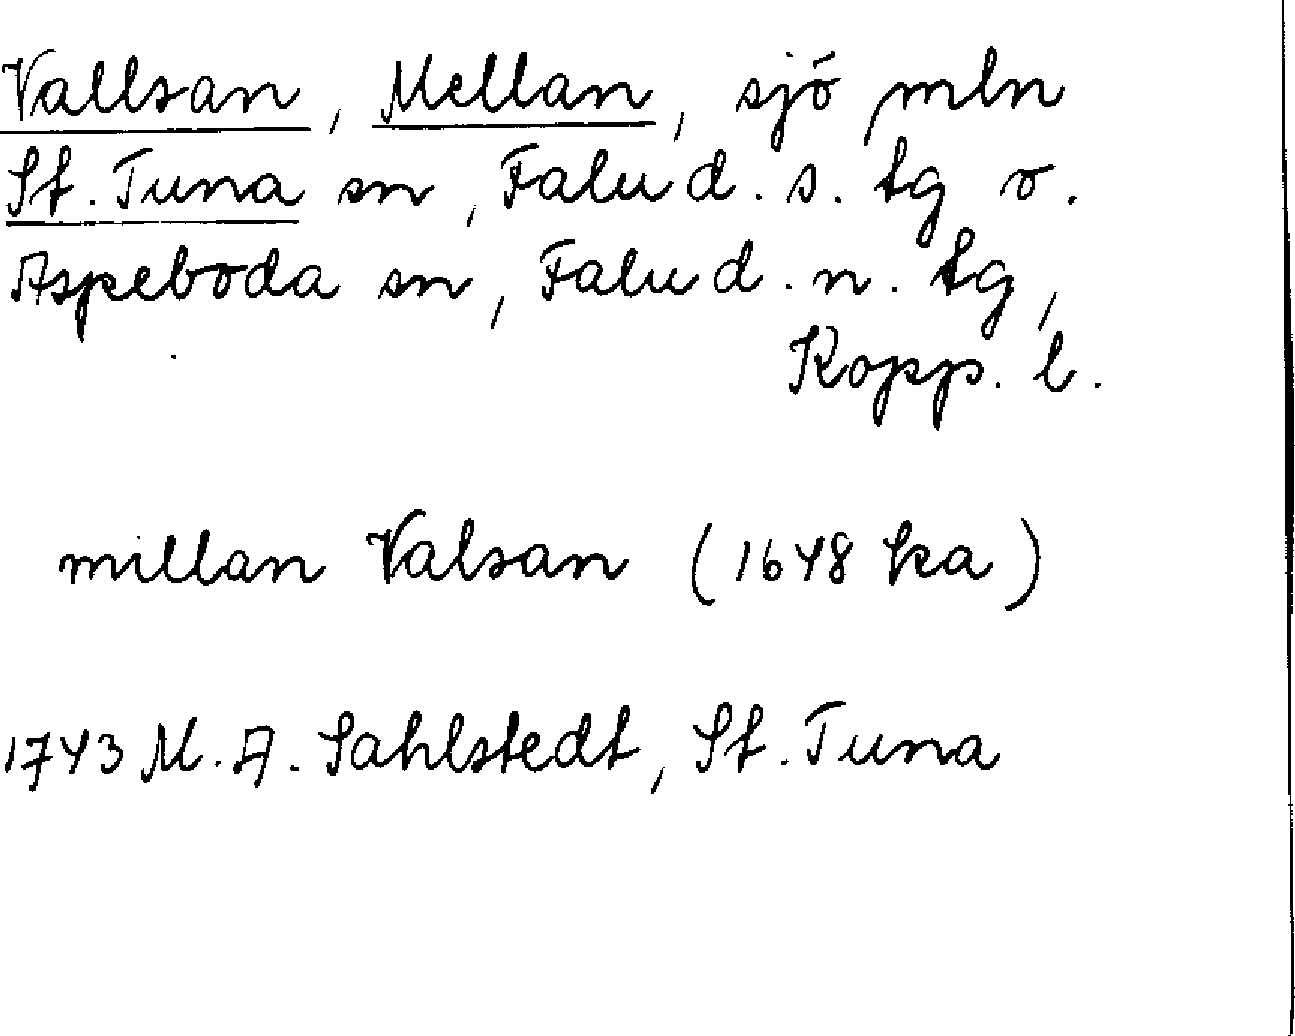 Vallsan, Mellan, sjö mln
St. Tuna sn, Falu d. s. tg o.
Aspeboda sn, Falu d. n. tg,
Kopp. l.
millan Valsan (1648 ka)
1743 M. A. Sahlstedt, St. Tuna